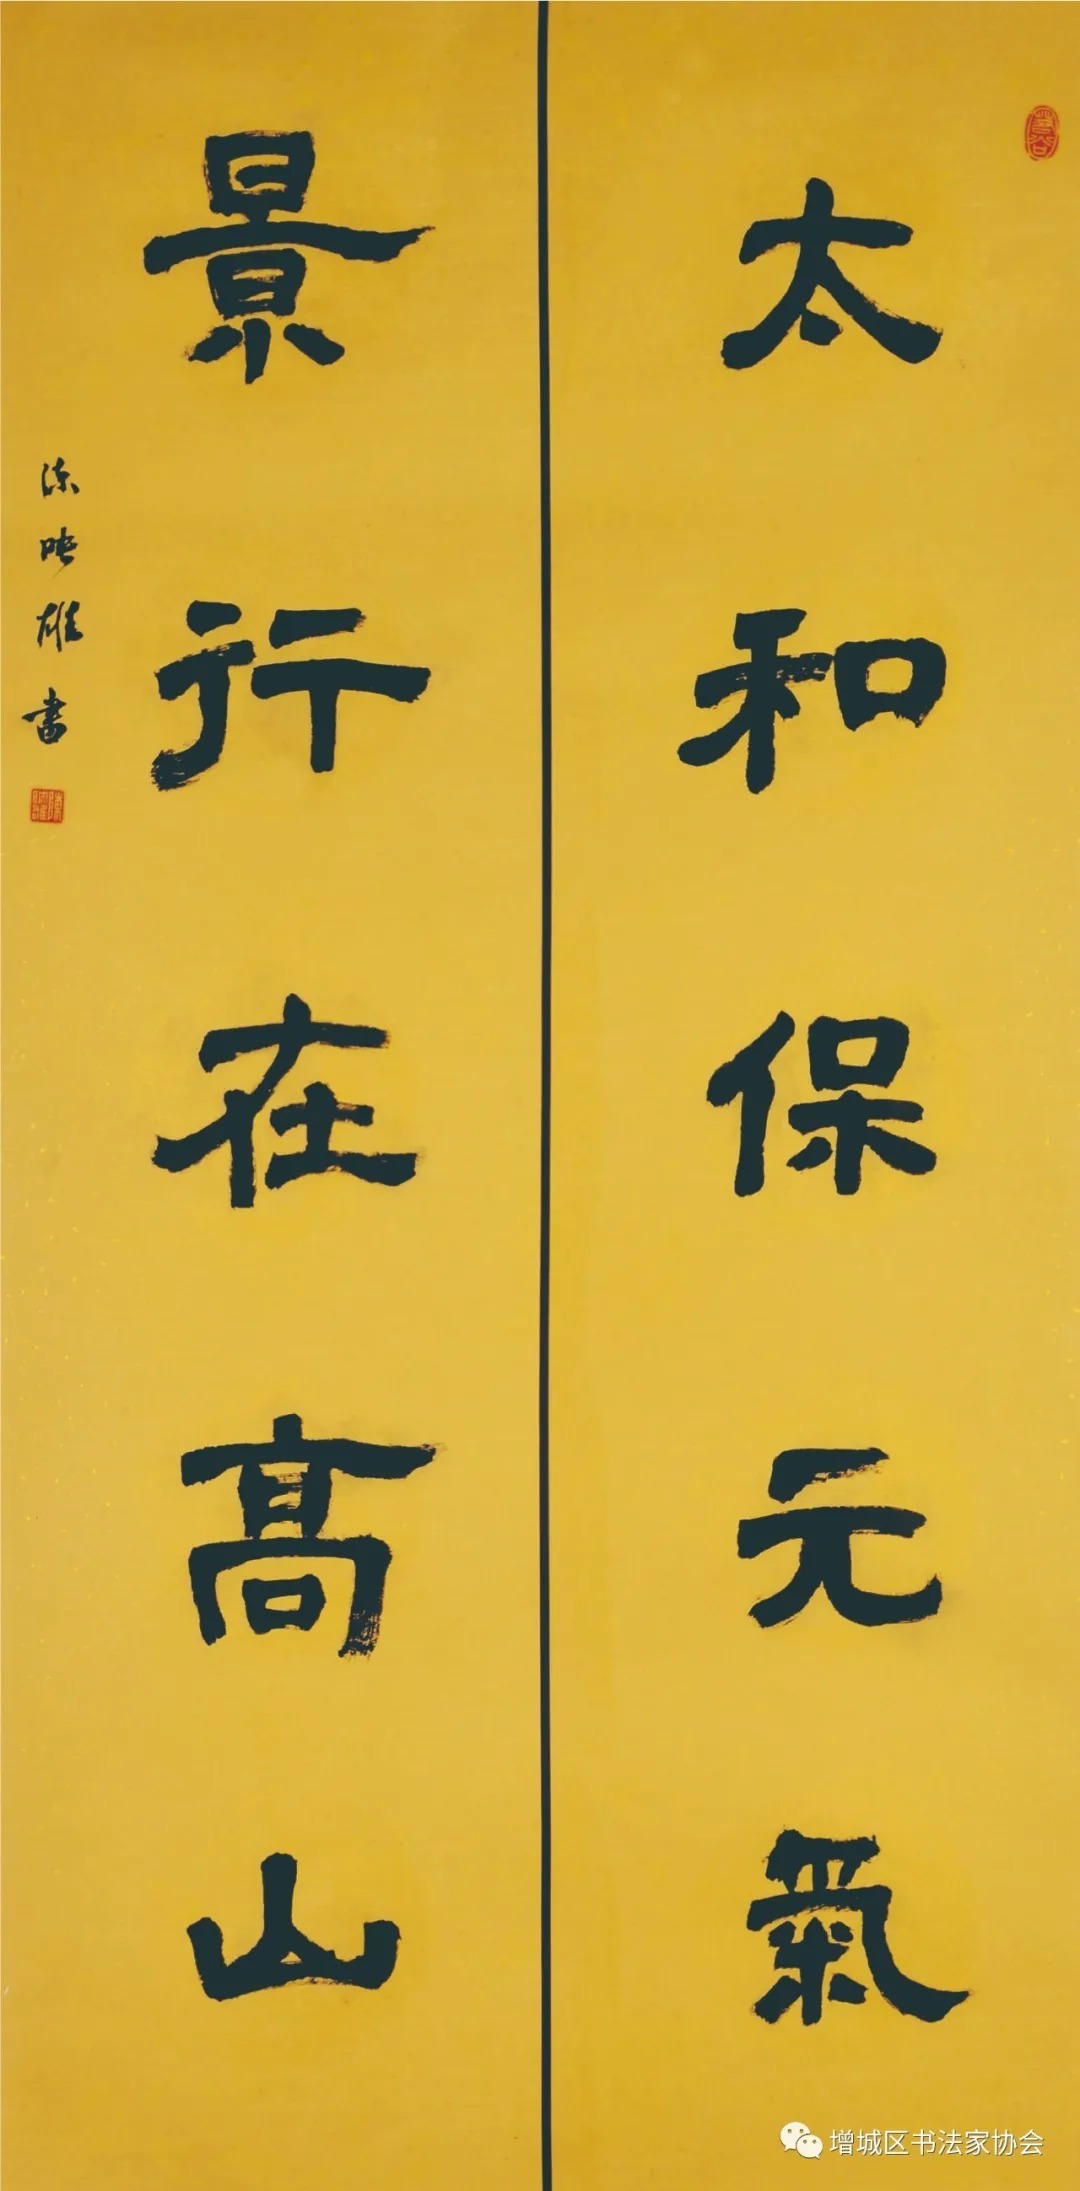 太和保元氣
景行在高山
陈映雄书
增城区书法家协会